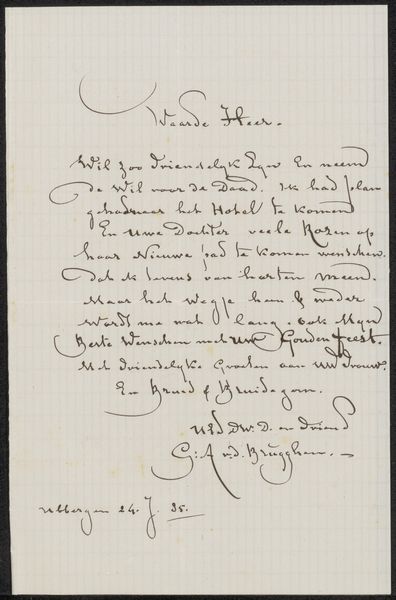 Waarde Heer.
Wil zoo vriendelyk zyn En neem
de Wil voor de Daad. Ik had plan
gehad naar het Hotel te komen
En uwe Dochter veele Rozen op
haar Nieuwe pad te komen wenschen.
dat ik tevens van harten meen.
Maar het wegje heen & weder
wordt me wat lang ook Myn
Beste Wenschen met uw Gouden feest.
Met vriendelyke Groeten aan uw Vrouw.
En Bruid & Bruidegom.
UEd Dw. D. en Vriend
G: A v.d. Brugghen.
Ubbergen 24. J. 35.